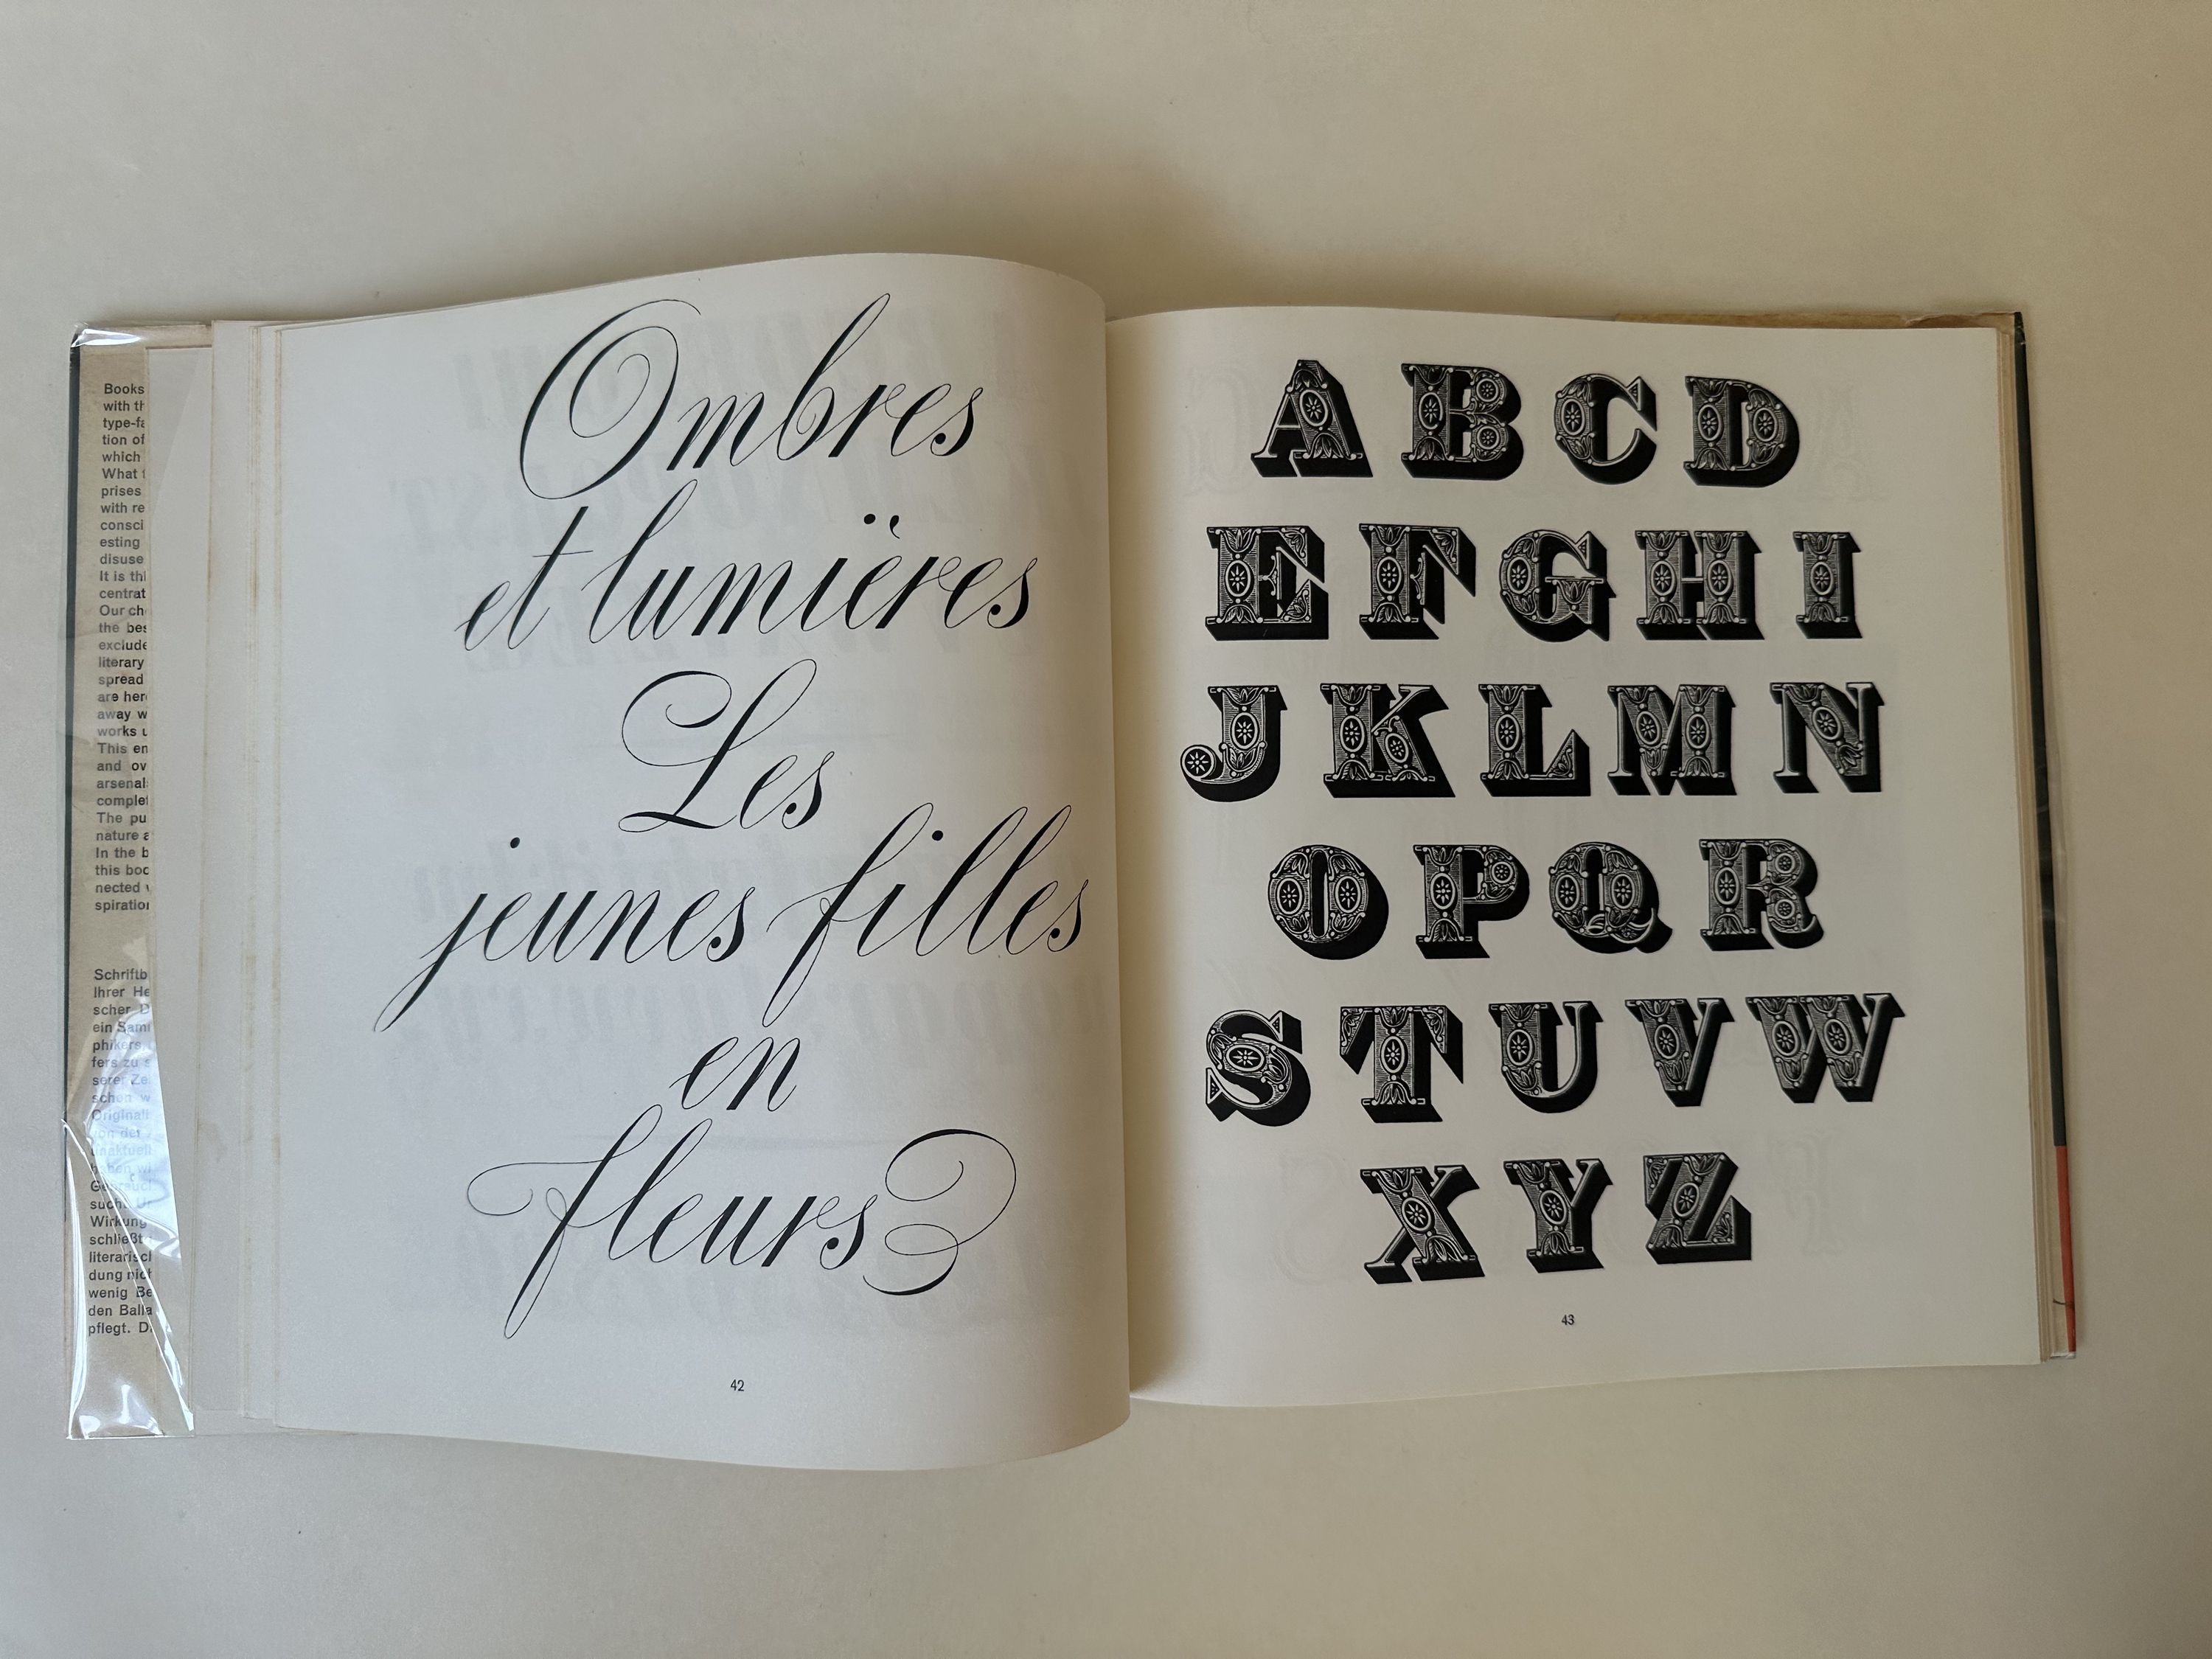 Books
with th
type-fa
tion of
which
What
prises
with re
consci
esting
disuse
It is thi
centrat
Our ch
the bes
exclude
literary
spread
are her
away w
works u
This en
and ov
arsenal
complet
The pu
nature a
In the b
this boo
nected
spiration
Schriftb
Ihrer He
scher D
ein Sam
phikers,
fers zu s
serer Ze
schen w
Originali
von der
unaktuell
haben wi
Gebrauc
sucht. Un
Wirkung
schließt
literarisch
dung nich
wenig Be
den Balla
pflegt. D
Ombres
et lumières
Les
jeunes filles
en
fleurs
42
A B C D
E F G H I
J K L M N
O P Q R
S T U V W
X Y Z
43